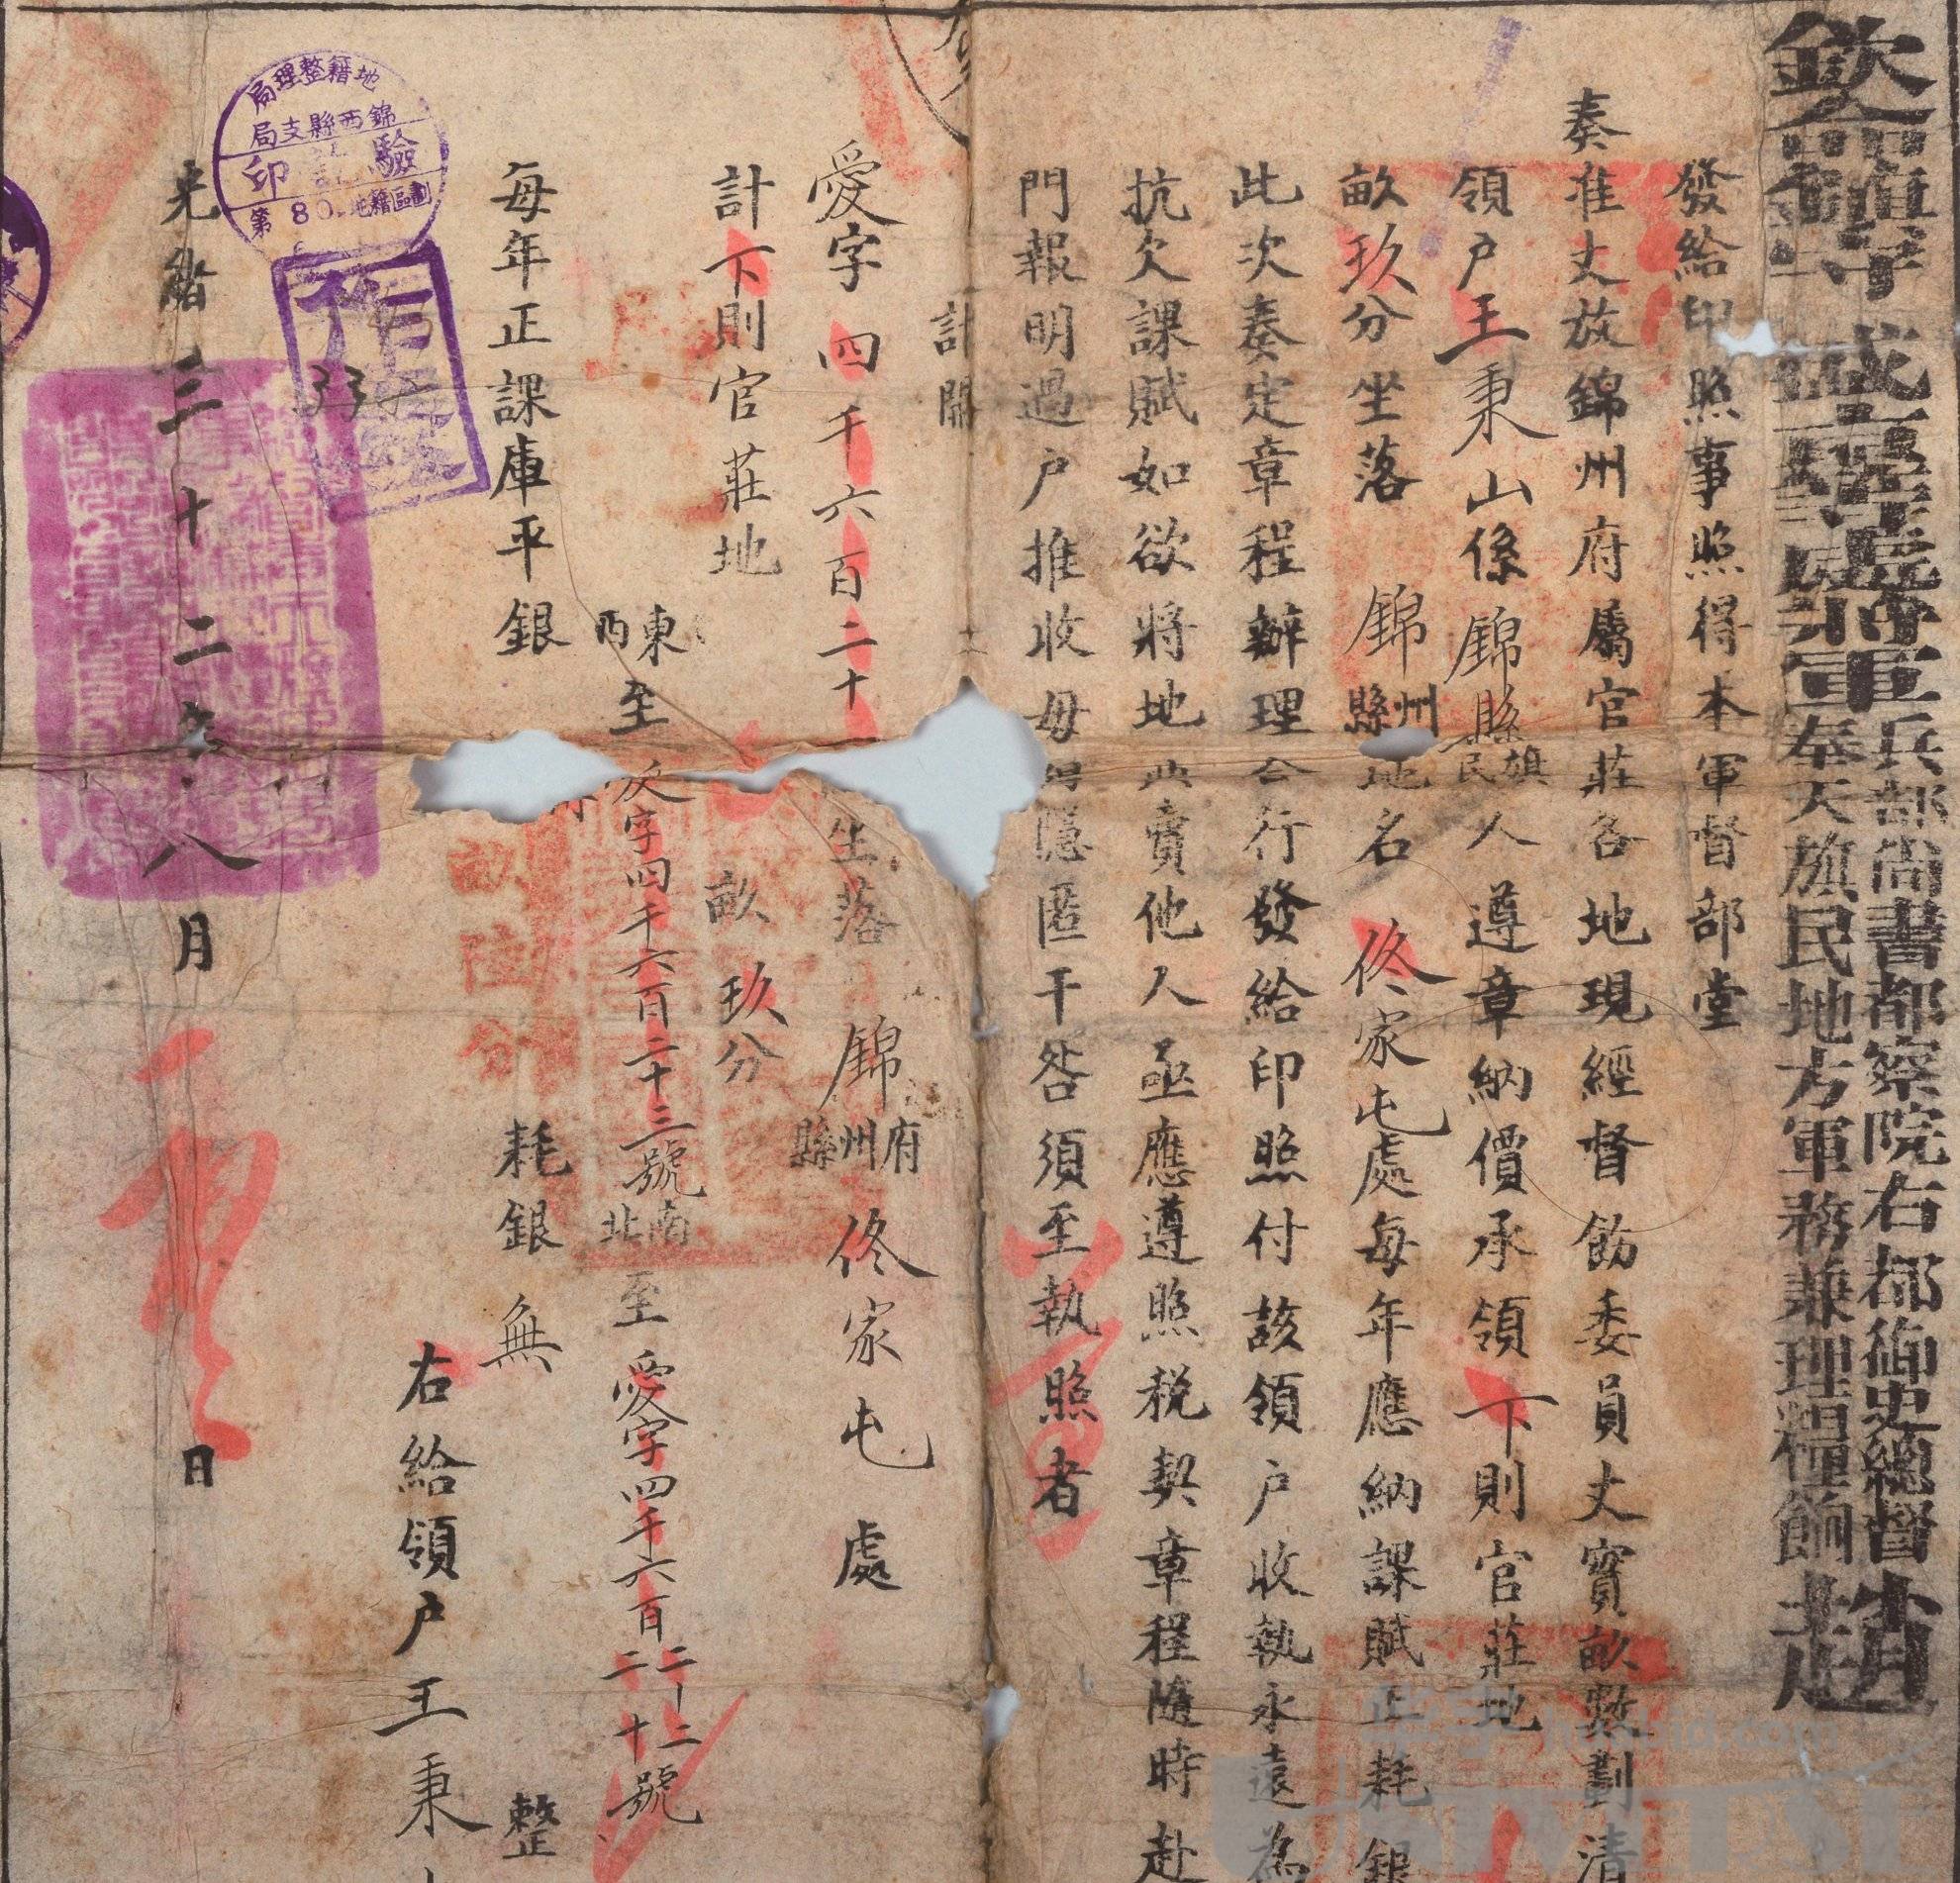 欽命鎮守盛京等處將軍
兵部尚書都察院右都御史總督
奉天旗民地方軍務兼理糧餉
趙
發給印照事照得本軍督部堂
奏准丈放錦州府屬官莊各地現經督飭委員丈實畝數劃清
領戶王秉山係錦縣旗民人遵章納價承領下則官莊地
畝玖分坐落錦州縣地名佟家屯處每年應納課賦正耗銀
此次奏定章程辦理合行發給印照付該領戶收執永遠為
抗欠課賦如欲將地典賣他人亟應遵照稅契章程隨時赴
門報明過戶推收毋得隱匿干咎須至執照者
計開
愛字四千六百二十
坐落錦府州縣佟家屯處
計下則官莊地
畝玖分
東西至
字四千六百二十三號
南北至愛字四千六百二十二二十號
每年正課庫平銀
耗銀無
整
畝
分
右給領戶王秉
光緒三十二年八月日
地籍整理局
錦西縣支局
驗
印
第80地籍區劃